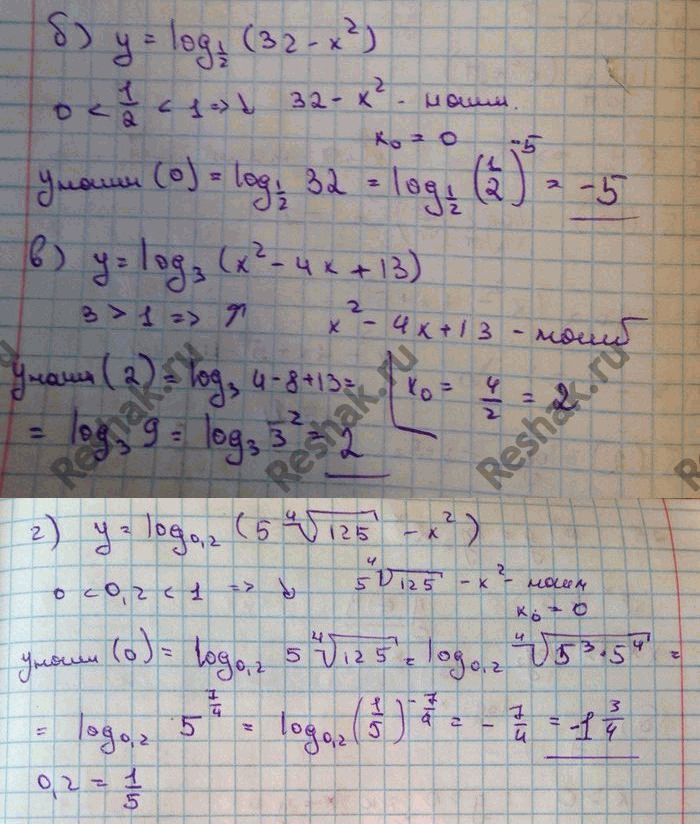 б) y = log_{1/2} (32 - x²)
0 < 1/2 < 1 => ↓ 32 - x² - наим.
x₀ = 0
yнаим (0) = log_{1/2} 32 = log_{1/2} (1/2)^{-5} = -5
в) y = log₃ (x² - 4x + 13)
3 > 1 => ↑ x² - 4x + 13 - наиб
yнаим (2) = log₃ 4 - 8 + 13 = x₀ = 4/2 = 2
= log₃ 9 = log₃ 3² = 2
Reshak.ru Reshak.ru Reshak.ru Reshak.ru
г) y = log_{0,2} (5 ⁴√125 - x²)
0 < 0,2 < 1 => ↓ 5 ⁴√125 - x² - наим
x₀ = 0
yнаим (0) = log_{0,2} 5 ⁴√125 = log_{0,2} ⁴√(5³·5⁴) =
= log_{0,2} 5^{7/4} = log_{0,2} (1/5)^{-7/4} = - 7/4 = -1 3/4
0,2 = 1/5